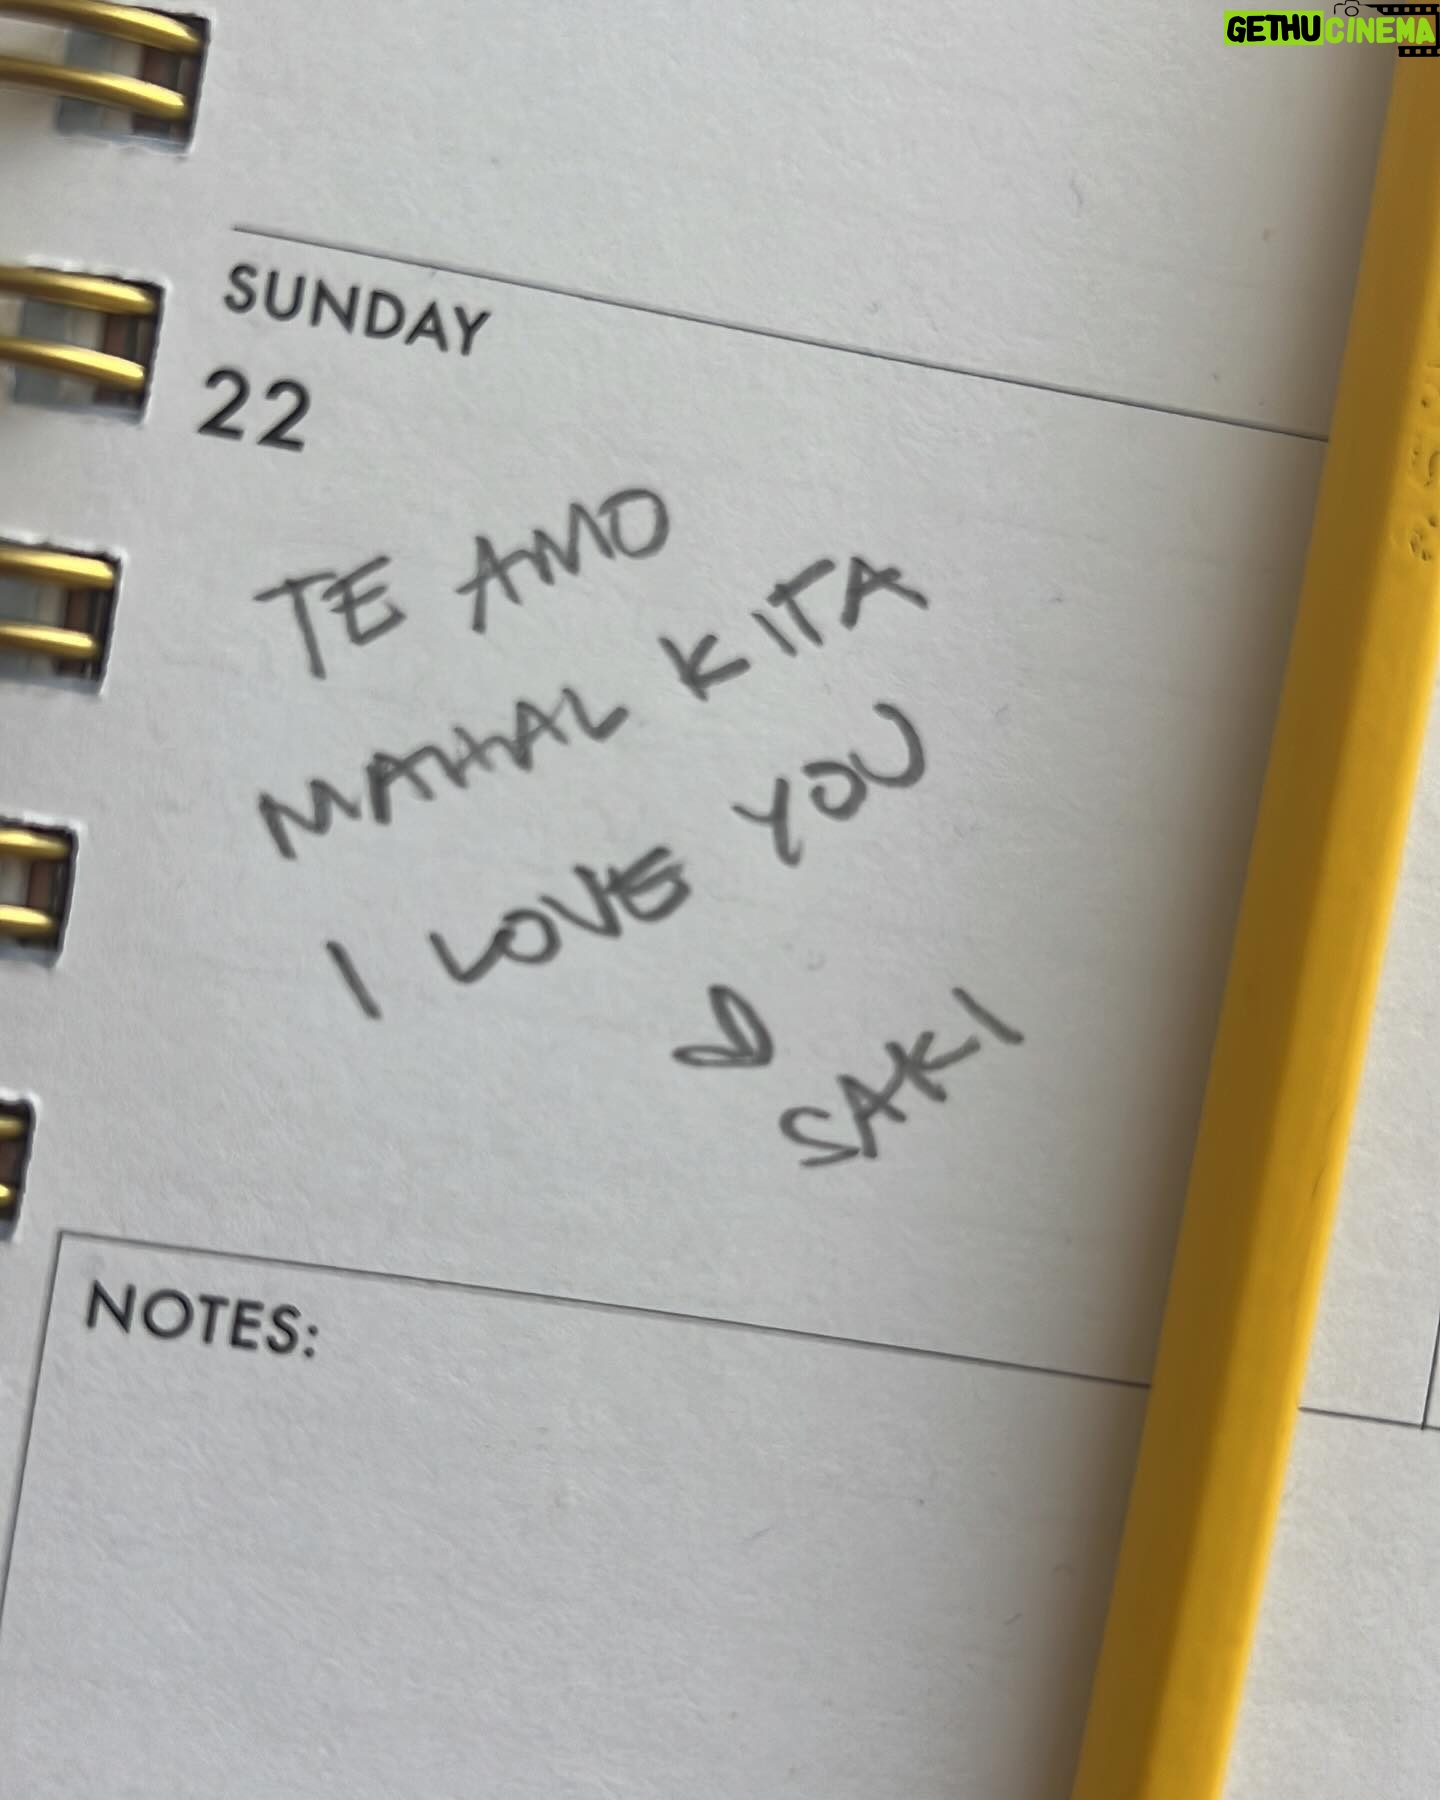 GETHUCINEMA
SUNDAY
22
TE AMO
MAHAL KITA
I LOVE YOU
SAKI
NOTES: